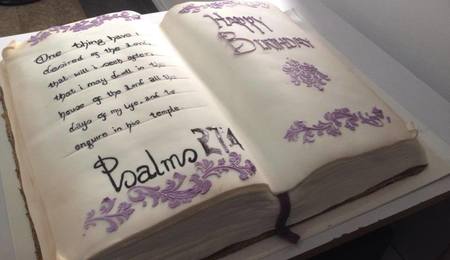 One thing have I
desired of the Lord,
that will i seek after;
that i may dwell in the
house of the Lord all the
days of my life, and to
enquire in his temple
Psalms 27:4
Happy
Birthday